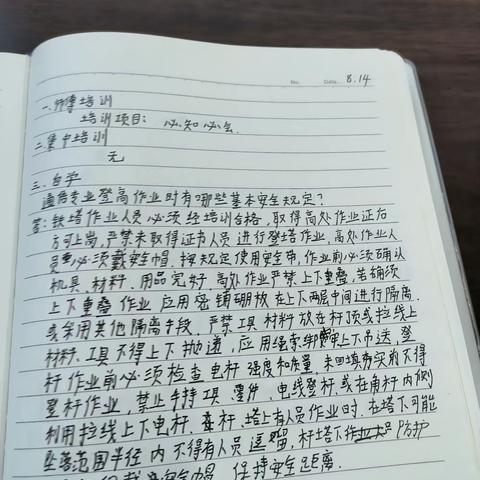 No. Date. 8.14
一.师傅培训
培训项目: 必知必会.
二.集中培训
无
三.自学
通信专业登高作业时有哪些基本安全规定?
答:铁塔作业人员必须经培训合格,取得高处作业证后
方可上岗,严禁未取得证书人员进行登塔作业,高处作业人
员必须戴安全帽.按规定使用安全带,作业前必须确认
机具.材料.用品完好.高处作业严禁上下重叠,若确须
上下重叠作业应用密铺棚放在上下两层中间进行隔离.
或采用其他隔离手段.严禁工具材料放在杆顶或拉线上
材料.工具不得上下抛递,应用绳索绑上下吊送.登
杆作业前必须检查电杆强度和质量.未回填夯实前不得
登杆作业,禁止手持工具.零件.电线登杆.或在角杆内侧
利用拉线上下电杆.在杆.塔上有人员作业时.在塔下可能
坠落范围半径内不得有人员逗留,杆塔下作防护
安全帽.保持安全距离.